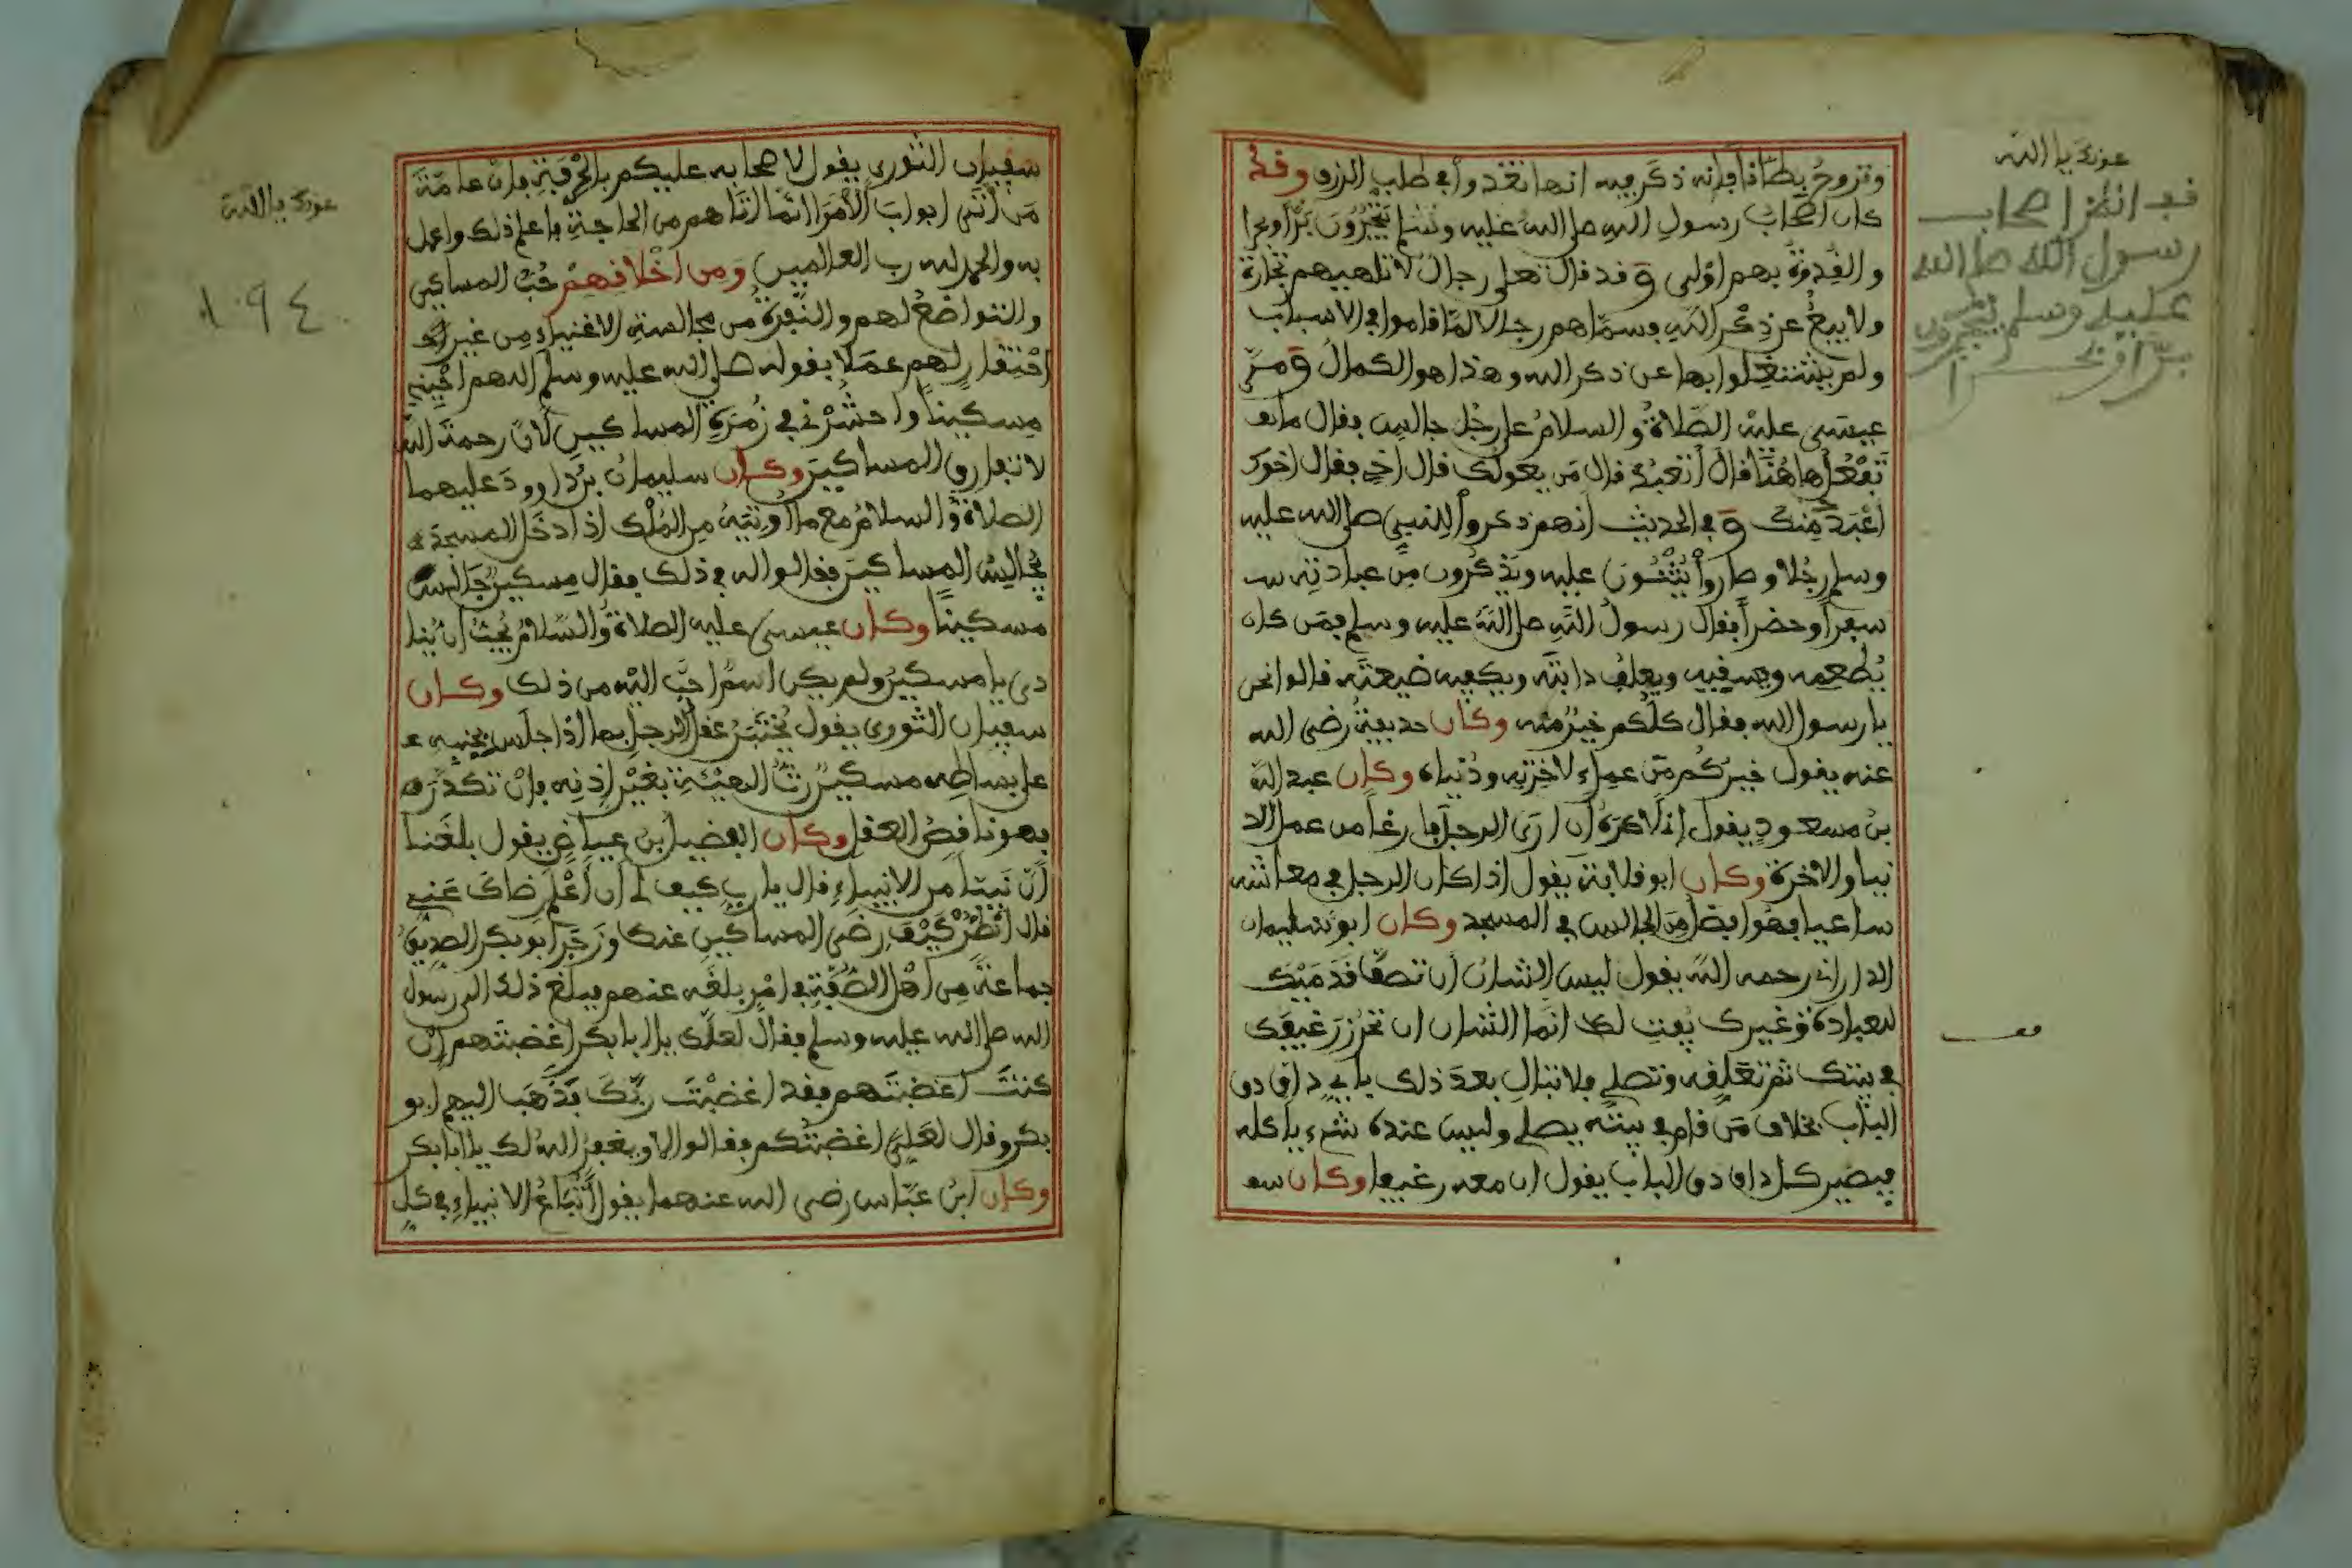 وتروح بطانا فإنه ذكر فيه انها تغدوا في طلب الرزق وقد
كان اصحاب رسول الله صلى الله عليه وسلم يتجرون برا وبحرا
والقدوة بهم اولى وقد قال تعلى رجال لا تلهيهم تجارة
ولا بيع عن ذكر الله فسماهم رجالا لما قاموا في الاسباب
ولم يشتغلوا بها عن ذكر الله وهذا هو الكمال ومر
عيسى عليه الصلاة والسلام على رجل جالس فقال ما
تفعل هاهنا فال أتعبد قال من يعولك قال اخي فقال اخوك
اعبد منك وفي الحديث انهم ذكروا للنبي صلى الله عليه
وسلم رجلا وصاروا يثنون عليه ويذكرون من عبادته
سفرا وحضرا فقال رسول الله صلى الله عليه وسلم فمن كان
يطعمه ويسقيه ويعلف دابته ويكفيه ضيعته قالوا نحن
يا رسول الله فقال كلكم خير منه وكان حذيفة رضى الله
عنه يقول خيركم من عمل لآخرته ودنياه وكان عبد الله
بن مسعود يقول إني لاكره أن ارى الرجل فارغا من عمل الد
نيا والاخرة وكان ابو قلابة يقول اذا كان الرجل في معاشه
ساعيا فهو افضل من الجالس في المسجد وكان ابو سليمان
الداراني رحمه الله يقول ليس الشان أن تصف قدميك
للعبادة وغيرك يفت لك انما الشان ان تحرز رغيفك
في بيتك ثم تغلقه وتصلي فلا تبال بعد ذلك باي داق دق
الباب بخلاف من قام في بيته يصلي وليس عنده شيء ياكله
فيصير كل داق دق الباب يقول ان معه رغيفا وكان سف
عونك يا الله
قف انظر اصحاب
رسول الله صلى الله
عليه وسلم يتجرون
برا وبحرا
سفيان الثوري يقول لاصحابه عليكم بالحرفة فإن عامة
من أتى ابواب الأمراء انما اتاهم من الحاجة فاعلم ذلك واعمل
به والحمد لله رب العالمين ومن اخلاقهم حب المساكين
والتواضع لهم والنفرة من مجالسة الاغنياء من غير
احتقار لهم عملا بقوله صلى الله عليه وسلم اللهم احيني
مسكينا واحشرني في زمرة المساكين لأن رحمة الله
لا تفارق المساكين وكان سليمان بن داوود عليهما
الصلاة والسلام مع ما أوتيه من الملك اذا دخل المسجد
يجالس المساكين فقالوا له في ذلك فقال مسكين جالس
مسكينا وكان عيسى عليه الصلاة والسلام يحب ان ينا
دى يا مسكين ولم يكن اسم احب اليه من ذلك وكان
سفيان الثوري يقول يختبر عقل الرجل بما اذا جلس بجنبه
على بساطه مسكين رث الهيئة بغير إذنه فإن تكدر
فهو ناقص العقل وكان الفضيل بن عياض يقول بلغنا
أن نبيا من الانبياء قال يا رب كيف لي أن أعلم رضاك عني
قال انظر كيف رضى المساكين عنك وزجر ابو بكر الصديق
جماعة من اهل الصفة في امر بلغه عنهم فبلغ ذلك الى رسول
الله صلى الله عليه وسلم فقال لعلك يا ابا بكر اغضبتهم إن
كنت اغضبتهم فقد اغضبت ربك فذهب اليهم ابو
بكر وقال لعلي اغضبتكم فقالوا لا ويغفر الله لك يا ابا بكر
وكان ابن عباس رضى الله عنهما يقول أتباع الانبياء في كل
عونك يا الله
١٠٩٤